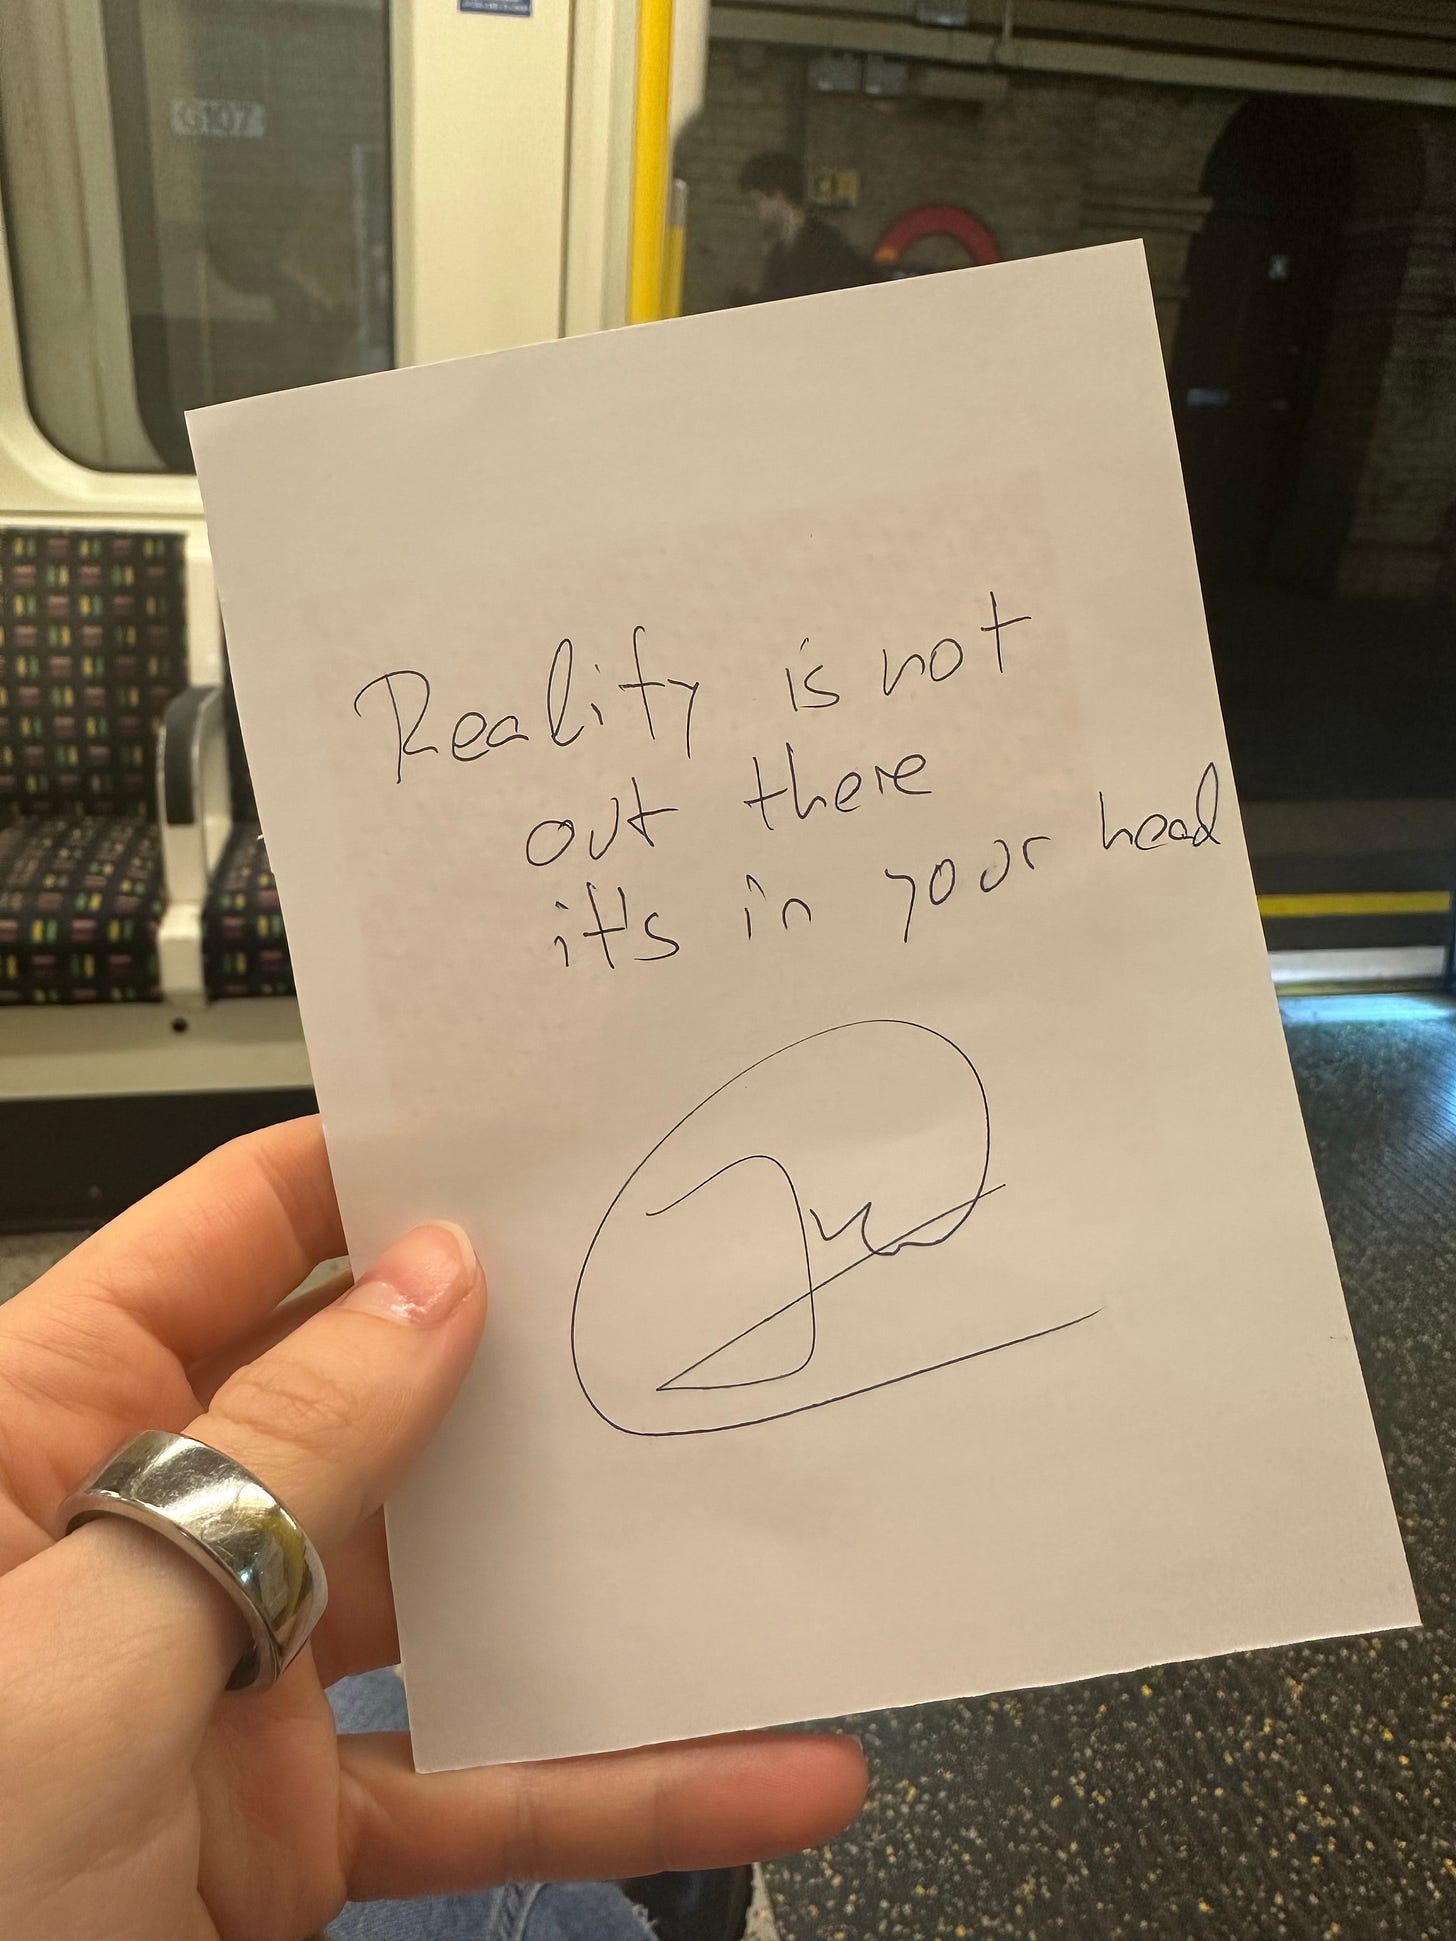 G107
Reality is not
out there
it's in your head